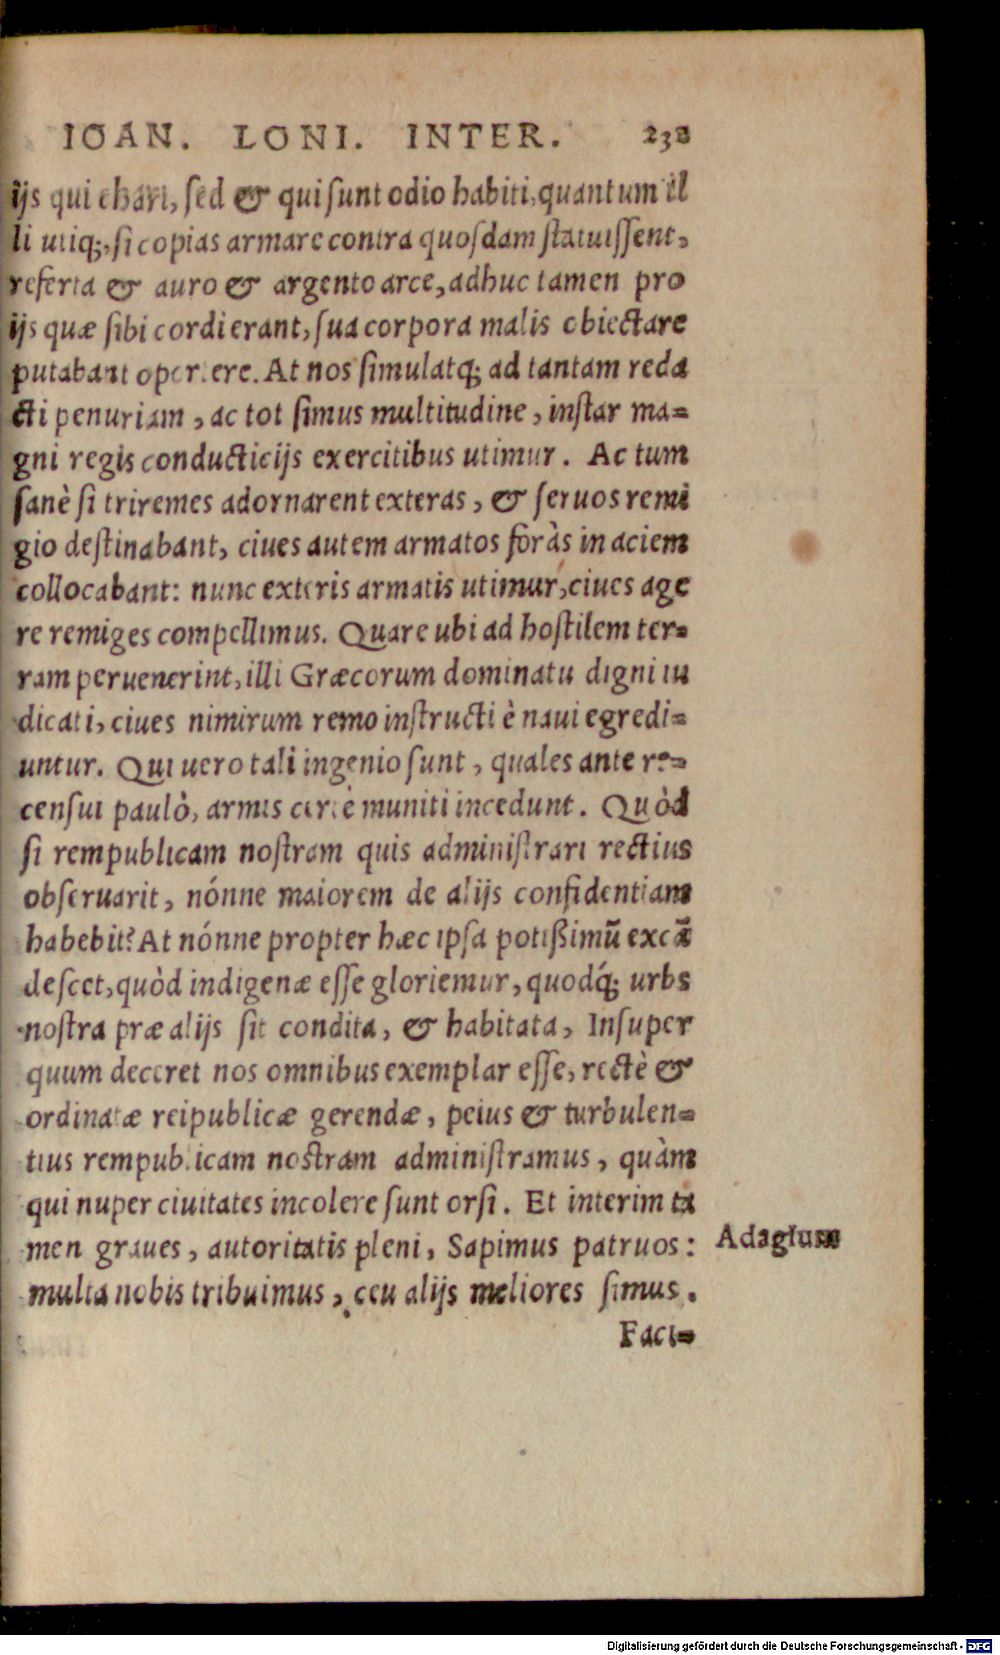 IOAN. LONI. INTER. 232
ijs qui chari, sed & qui sunt odio habiti, quantum il
li utiq;, si copias armare contra quosdam statuissent,
referta & auro & argento arce, adhuc tamen pro
ijs quæ sibi cordi erant, sua corpora malis obiectare
putabant oportere. At nos simulatq; ad tantam reda
cti penuriam, ac tot simus multitudine, instar ma=
gni regis conducticijs exercitibus utimur. Ac tum
sanè si triremes adornarent exteras, & seruos remi
gio destinabant, ciues autem armatos foràs in aciem
collocabant: nunc exteris armatis utimur, ciues age
re remiges compellimus. Quare ubi ad hostilem ter=
ram peruenerint, illi Græcorum dominatu digni iu
dicati, ciues nimirum remo instructi è naui egredi=
untur. Qui uero tali ingenio sunt, quales ante re=
censui paulò, armis certè muniti incedunt. Quòd
si rempublicam nostram quis administrari rectius
obseruarit, nónne maiorem de alijs confidentiam
habebit? At nónne propter hæc ipsa potißimũ excã
desceet, quòd indigenæ esse gloriemur, quodq́; urbs
nostra præ alijs sit condita, & habitata, Insuper
quum deceret nos omnibus exemplar esse, rectè &
ordinatæ reipublicæ gerendæ, peius & turbulen=
tius rempublicam nostram administramus, quàm
qui nuper ciuitates incolere sunt orsi. Et interim ta
men graues, autoritatis pleni, Sapimus patruos: Adagium
multa nobis tribuimus, ceu alijs meliores simus.
Faci=
Digitalisierung gefördert durch die Deutsche Forschungsgemeinschaft - DFG